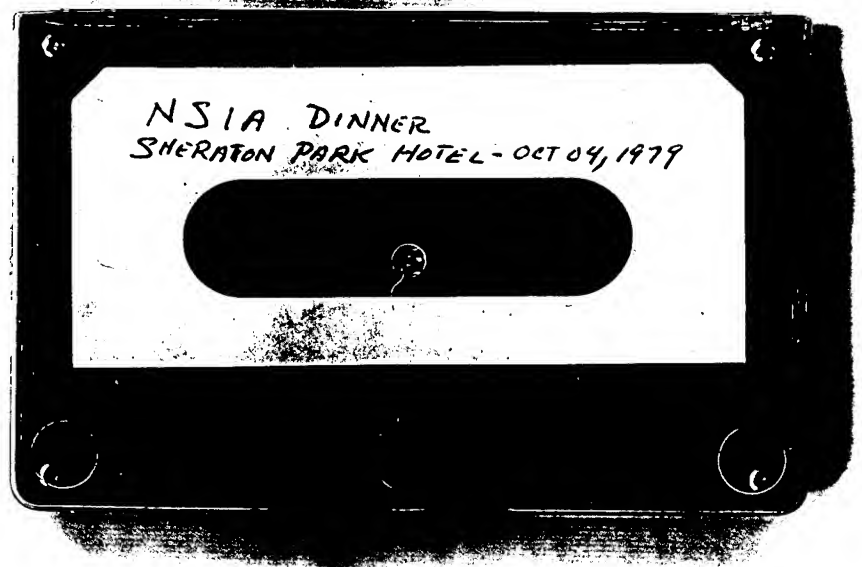 NSIA DINNER
SHERATON PARK HOTEL - OCT 04, 1979